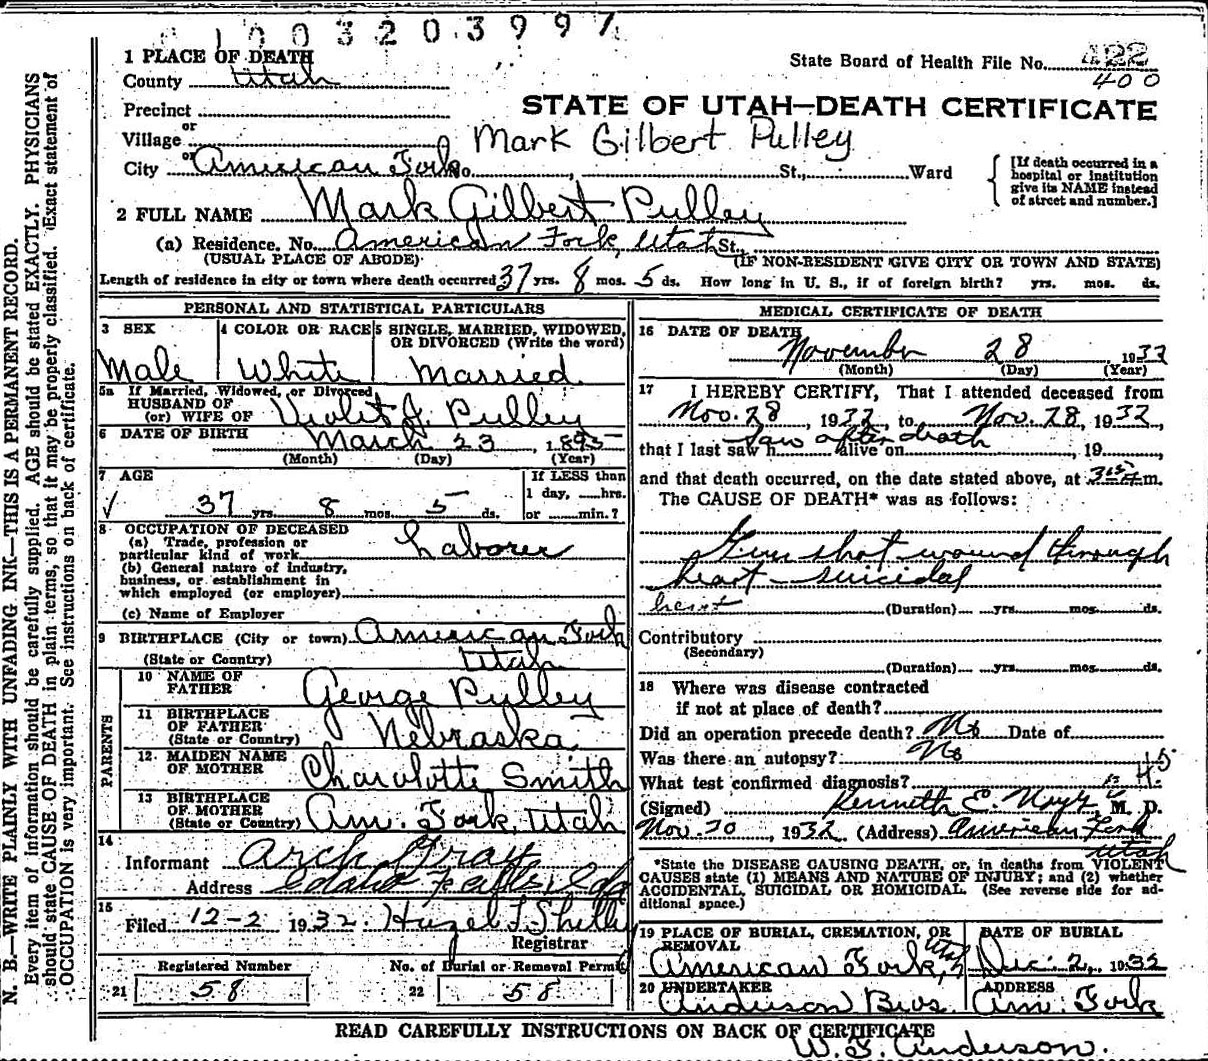 0 1 0 0 3 2 0 3 9 9 7
1 PLACE OF DEATH
County Utah
State Board of Health File No. 422
400
Precinct
STATE OF UTAH—DEATH CERTIFICATE
or
Village
Mark Gilbert Pulley
or
City American Fork No. St., Ward
[If death occurred in a hospital or institution give its NAME instead of street and number.]
2 FULL NAME Mark Gilbert Pulley
(a) Residence. No. American Fork, Utah St.,
(USUAL PLACE OF ABODE) (IF NON-RESIDENT GIVE CITY OR TOWN AND STATE)
Length of residence in city or town where death occurred 37 yrs. 8 mos. 5 ds. How long in U. S., if of foreign birth? yrs. mos. ds.
PERSONAL AND STATISTICAL PARTICULARS
3 SEX 4 COLOR OR RACE 5 SINGLE, MARRIED, WIDOWED, OR DIVORCED (Write the word)
Male White Married
5a If Married, Widowed, or Divorced
HUSBAND OF
(or) WIFE OF Violet J. Pulley
6 DATE OF BIRTH March 23, 1895
(Month) (Day) (Year)
7 AGE If LESS than
1 day, hrs.
✓ 37 yrs. 8 mos. 5 ds. or min.?
8 OCCUPATION OF DECEASED
(a) Trade, profession or
particular kind of work Laborer
(b) General nature of industry,
business, or establishment in
which employed (or employer)
(c) Name of Employer
9 BIRTHPLACE (City or town) American Fork
(State or Country) Utah
PARENTS
10 NAME OF
FATHER George Pulley
11 BIRTHPLACE
OF FATHER
(State or Country) Nebraska
12 MAIDEN NAME
OF MOTHER Charolotte Smith
13 BIRTHPLACE
OF MOTHER
(State or Country) Am. Fork, Utah
14
Informant Arch Gray
Address Idaho Falls, Ida
15
Filed 12-2 1932 Hazel T Shelley
Registrar
Registered Number No. of Burial or Removal Permit
21 58 22 58
MEDICAL CERTIFICATE OF DEATH
16 DATE OF DEATH
November 28, 1932
(Month) (Day) (Year)
17 I HEREBY CERTIFY, That I attended deceased from
Nov. 28, 1932, to Nov. 28, 1932,
saw after death
that I last saw h alive on , 19
and that death occurred, on the date stated above, at m.
The CAUSE OF DEATH* was as follows:
Gun shot wound through
heart - suicidal
heart (Duration) yrs. mos. ds.
Contributory
(Secondary)
(Duration) yrs. mos. ds.
18 Where was disease contracted
if not at place of death?
Did an operation precede death? No Date of
Was there an autopsy? No
What test confirmed diagnosis?
(Signed) Kenneth E. M. D.
Nov. 30, 1932 (Address) American Fork
Utah
*State the DISEASE CAUSING DEATH, or, in deaths from VIOLENT
CAUSES state (1) MEANS AND NATURE OF INJURY; and (2) whether
ACCIDENTAL, SUICIDAL OR HOMICIDAL. (See reverse side for ad-
ditional space.)
19 PLACE OF BURIAL, CREMATION, OR REMOVAL DATE OF BURIAL
American Fork, Utah Dec. 2, 1932
20 UNDERTAKER ADDRESS
Anderson Bros. Am. Fork
READ CAREFULLY INSTRUCTIONS ON BACK OF CERTIFICATE
W. F. Anderson.
N. B.—WRITE PLAINLY WITH UNFADING INK—THIS IS A PERMANENT RECORD.
Every item of information should be carefully supplied. AGE should be stated EXACTLY. PHYSICIANS
should state CAUSE OF DEATH in plain terms, so that it may be properly classified. Exact statement of
OCCUPATION is very important. See instructions on back of certificate.